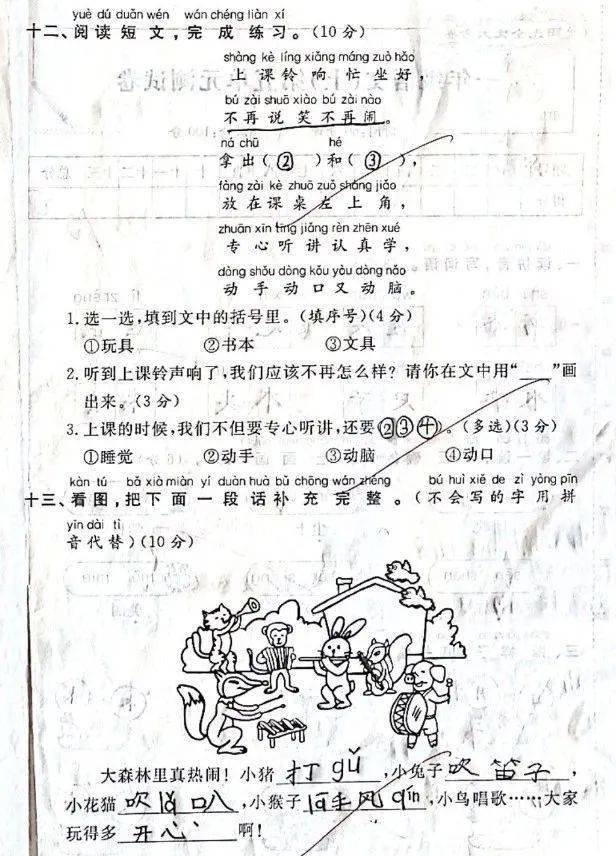 yuè dú duǎn wén wán chéng liàn xí
十二、阅读短文,完成练习。(10分)
shàng kè líng xiǎng máng zuò hǎo
上课铃响忙坐好,
bú zài shuō xiào bú zài nào
不再说笑不再闹。
ná chū hé
拿出(②)和(③),
fàng zài kè zhuō zuǒ shàng jiǎo
放在课桌左上角,
zhuān xīn tīng jiǎng rèn zhēn xué
专心听讲认真学,
dòng shǒu dòng kǒu yòu dòng nǎo
动手动口又动脑。
1.选一选,填到文中的括号里。(填序号)(4分)
①玩具 ②书本 ③文具
2.听到上课铃声响了,我们应该不再怎么样?请你在文中用“___”画
出来。(3分)
3.上课的时候,我们不但要专心听讲,还要(②③④)。(多选)(3分)
①睡觉 ②动手 ③动脑 ④动口
kàn tú bǎ xià miàn yí duàn huà bǔ chōng wán zhěng bú huì xiě de zì yòng pīn
十三、看图,把下面一段话补充完整。(不会写的字用拼
yīn dài tì
音代替)(10分)
大森林里真热闹!小猪打gǔ,小兔子吹笛子,
小花猫吹lǎ叭,小猴子lā手风qín,小鸟唱歌……大家
玩得多开心啊!